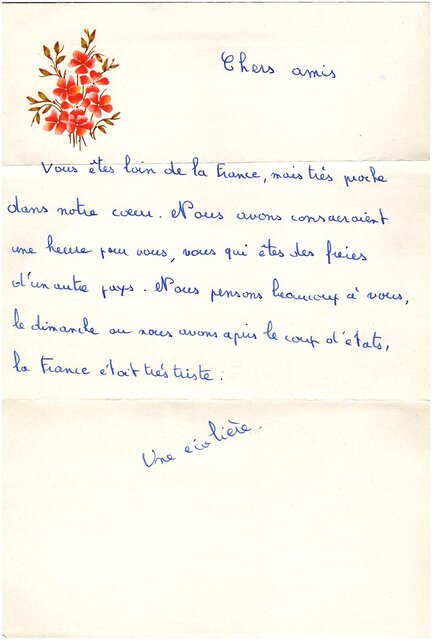 Chers amis
Vous êtes loin de la France, mais très proche
dans notre cœur. Nous avons consacraient
une heure pour vous, vous qui êtes des frères
d'un autre pays. Nous pensons beaucoup à vous,
le dimanche ou nous avons apris le coup d'états,
la France était très triste.
Une ecolière.